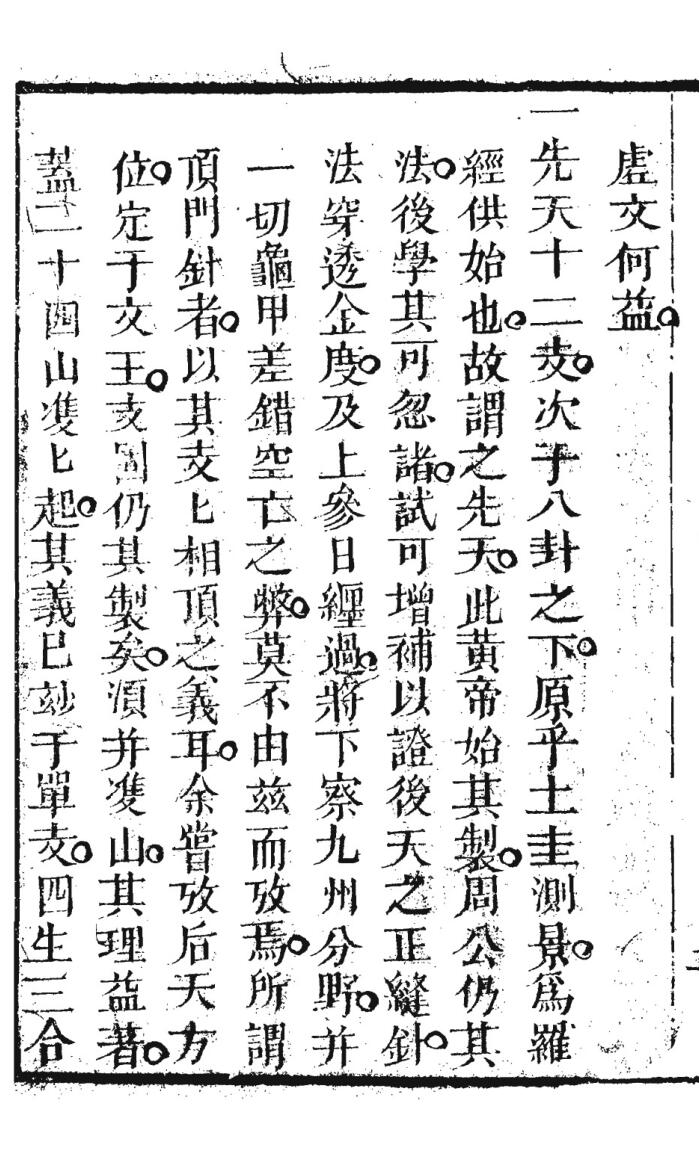 虛文何益。
一先天十二支。次于八卦之下。原乎土圭測景。爲羅
經供始也。故謂之先天。此黃帝始其製。周公仍其
法。後學其可忽諸。試可增補以證後天之正縫針。
法穿透金度。及上參日纏過。將下察九州分野。并
一切龜甲差錯空亡之弊。莫不由兹而攷焉。所謂
頂門針者。以其支匕相頂之義耳。余嘗攷后天方
位。定于文王。支圖仍其製矣。湏并㕠山。其理益著。
蓋二十四山㕠匕起。其義已玅于單支。四生三合